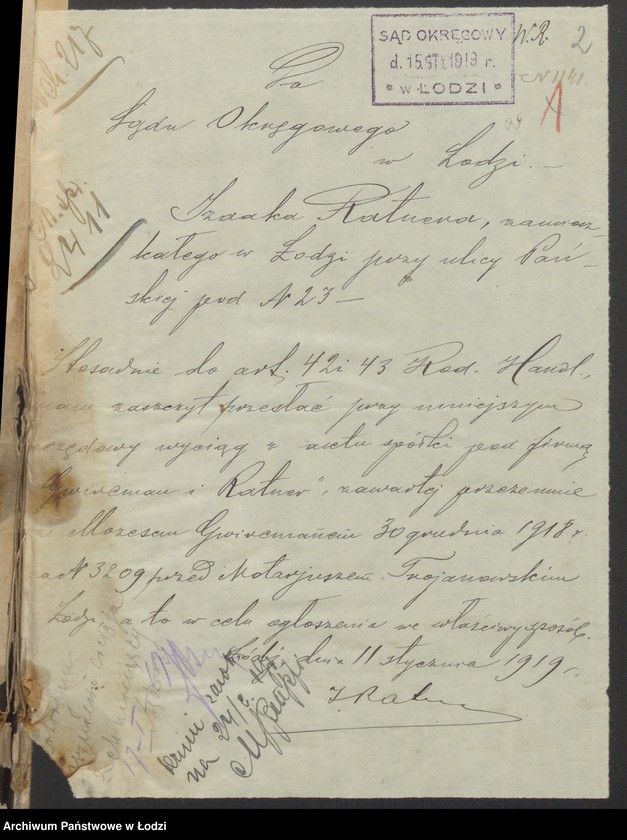 SĄD OKRĘGOWY
d. 15 STY. 1919 r.
w ŁODZI
W.R. 2
N 1141.
A
Do
Sądu Okręgowego
w Łodzi. –
Izaaka Ratnera, zamiesz-
kałego w Łodzi przy ulicy Pań-
skiej pod N 23 –
Stosownie do art. 42 i 43 Kod. Handl.,
mam zaszczyt przesłać przy niniejszym
urzędowy wyciąg z aktu spółki pod firmą
"Gwircman i Ratner", zawartej przezemnie
z Mozesem Gwircmańem 30 grudnia 1918 r.
za N 3209 przed Notarjuszem Trojanowskim
Łodzi, a to w celu ogłoszenia we właściwy sposób.
Łódź, dnia 11 stycznia 1919 r.
I. Ratner
217
24/11
na 24/I
17-I
Archiwum Państwowe w Łodzi